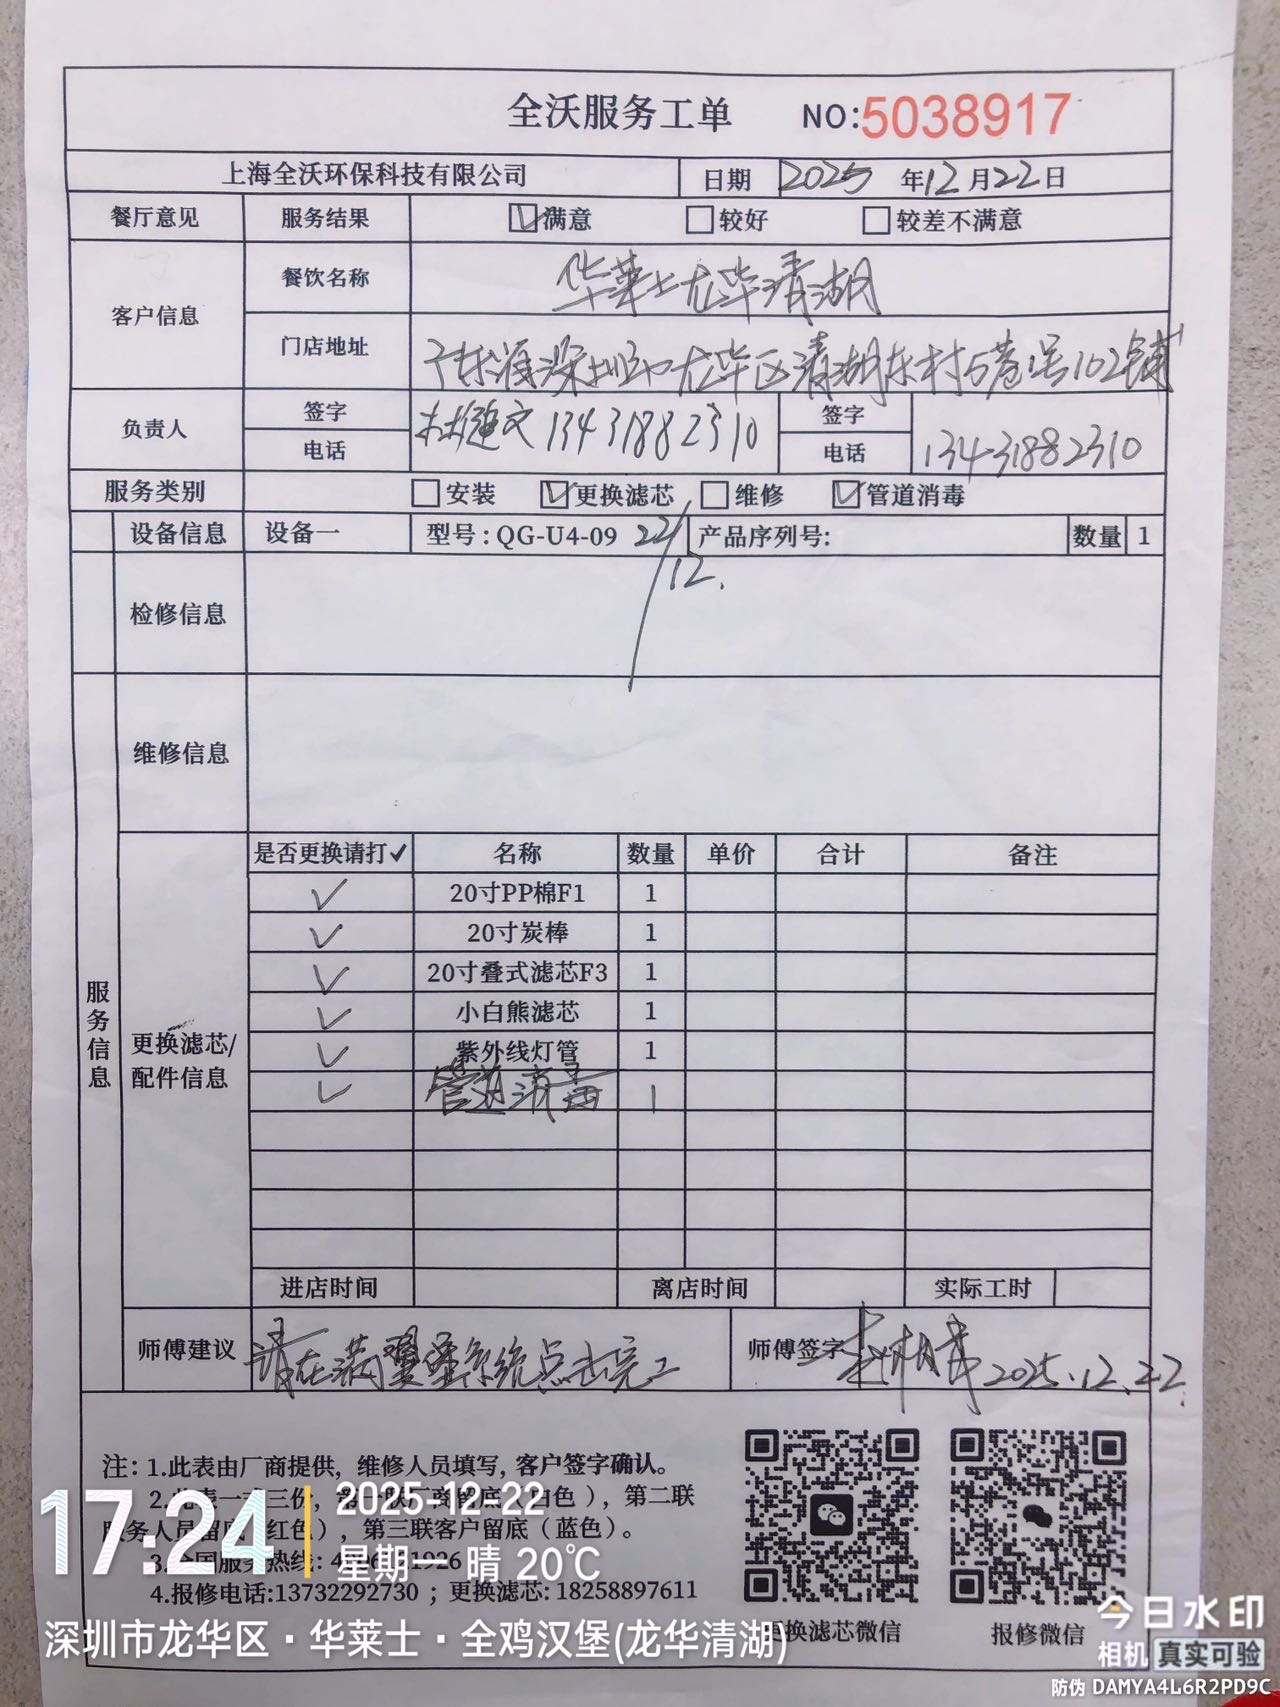 全沃服务工单 NO:5038917
上海全沃环保科技有限公司 日期 2025 年12月22日
餐厅意见 服务结果 ☑满意 □较好 □较差不满意
客户信息 餐饮名称 华莱士龙华清湖
门店地址 广东省深圳市龙华区清湖东村5巷 号102铺
负责人 签字 林建文 13431882310 签字
电话 电话 13431882310
服务类别 □安装 ☑更换滤芯 □维修 ☑管道消毒
设备信息 设备一 型号:QG-U4-09 22/12. 产品序列号: 数量 1
检修信息
维修信息
服务信息
更换滤芯/配件信息
是否更换请打✓ 名称 数量 单价 合计 备注
✓ 20寸PP棉F1 1
✓ 20寸炭棒 1
✓ 20寸叠式滤芯F3 1
✓ 小白熊滤芯 1
✓ 紫外线灯管 1
✓ 管道消毒 1
进店时间 离店时间 实际工时
师傅建议 请在满 堡系统点击完工 师傅签字 2025.12.22.
注: 1.此表由厂商提供, 维修人员填写, 客户签字确认。
2.此表一式三份, 第一联厂商留底(白色), 第二联
服务人员留底(红色), 第三联客户留底(蓝色)。
3.全国服务热线: 1926
4.报修电话:13732292730 ; 更换滤芯: 18258897611
更换滤芯微信 报修微信
17:24 2025-12-22
星期一 晴 20℃
深圳市龙华区·华莱士·全鸡汉堡(龙华清湖)
今日水印
相机 真实可验
防伪 DAMYA4L6R2PD9C